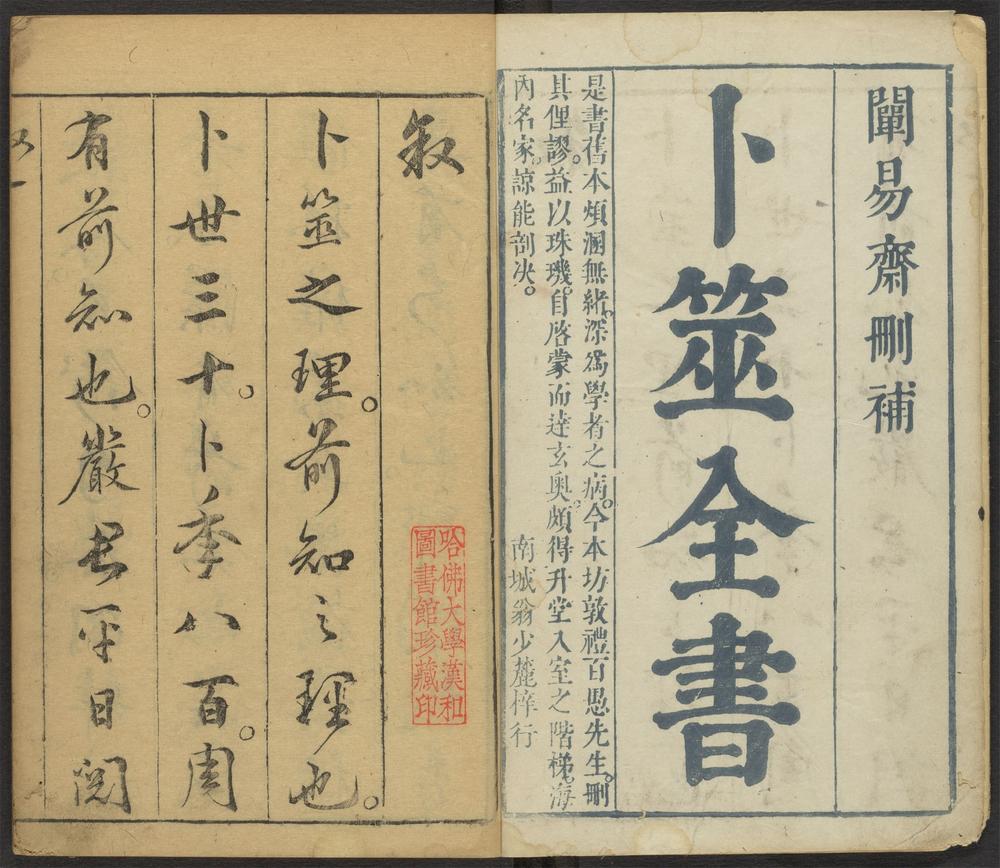 闡易齋刪補
卜筮全書
是書舊本煩溷無緒。深為學者之病。今本坊敦禮百愚先生。刪
其俚謬。益以珠璣。自啓蒙而達玄奧。頗得升堂入室之階梯。海
內名家。諒能剖决。
南城翁少麓梓行
敘
卜筮之理。前知之理也。
卜世三十。卜季八百。周
有前知也。嚴君平日閱
哈佛大學漢和
圖書館珍藏印